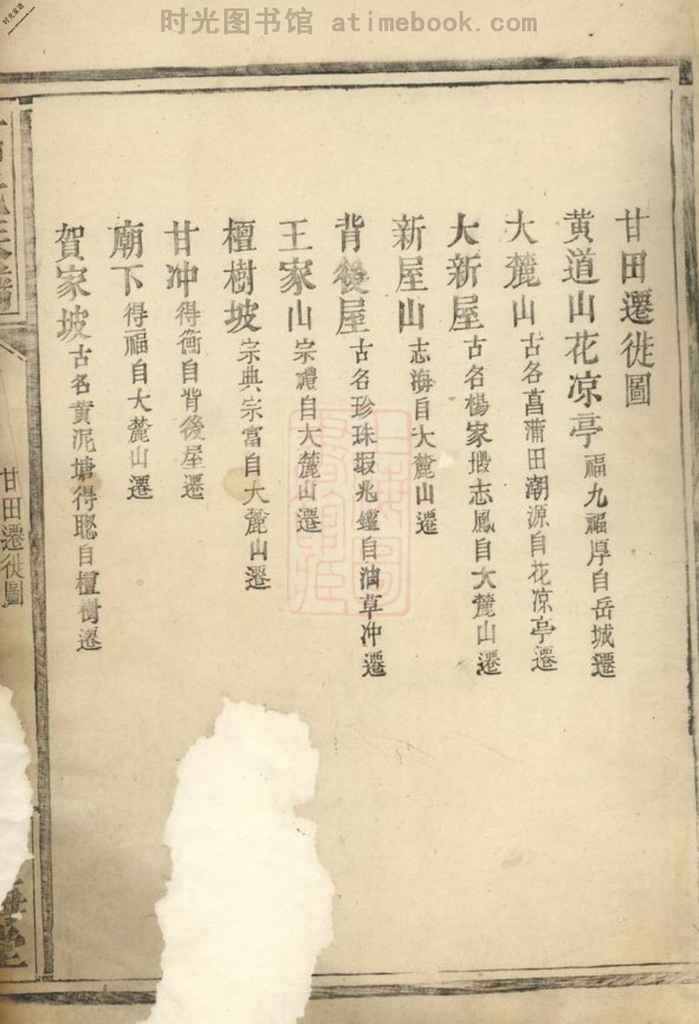 时光图书馆 atimebook.com
甘田遷徙圖
黄道山花凉亭福九福厚自岳城遷
大麓山古名菖蒲田潮源自花凉亭遷
大新屋古名楊家塅志鳳自大麓山遷
新屋山志海自大麓山遷
背後屋古名珍珠塅兆鑑自油草冲遷
王家山宗禮自大麓山遷
檀樹坡宗典宗富自大麓山遷
甘冲得衡自背後屋遷
廟下得福自大麓山遷
賀家坡古名黄泥塘得聰自檀樹遷
甘田遷徙圖
堂